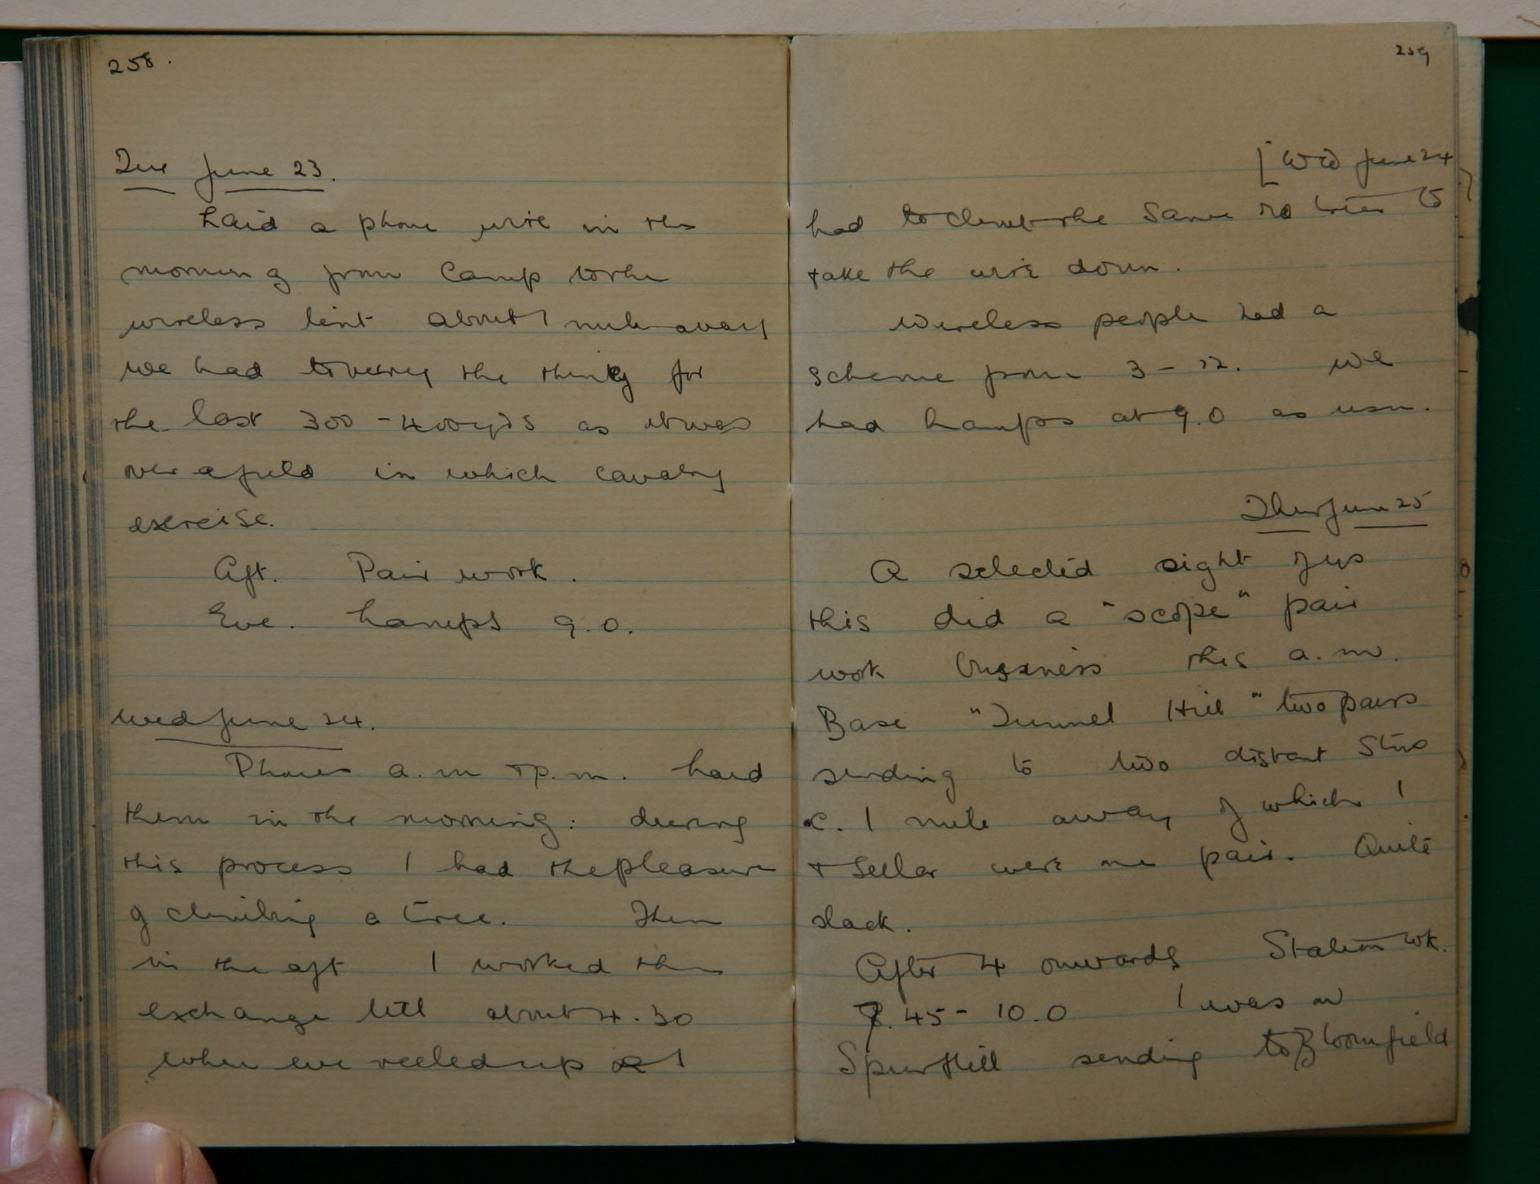 258.
Tue June 23.
Laid a phone wire in the
morning from Camp to the
wireless tent about 1 mile away
we had to bury the thing for
the last 300 - 400 yds as it was
over a field in which cavalry
exercise.
Aft. Pair work.
Eve. Lamps 9.0.
Wed June 24.
Phones a.m + p.m. Laid
them in the morning: during
this process I had the pleasure
of climbing a tree. Then
in the aft I worked the
exchange till about 4.30
when we reeled up & I
259
[Wed June 24
had to climb the same tree to
take the wire down.
Wireless people had a
scheme from 3 - 12. We
had lamps at 9.0 as usu.
Thur June 25
A selected eight of us
this did a "scope" pair
work business this a.m.
Base "Tunnel Hill" two pairs
sending to two distant Stns
c. 1 mile away of which I
+ Sellar were one pair. Quite
slack.
After 4 onwards Station wk.
8.45 - 10.0 I was on
Spur Hill sending to Bloomfield